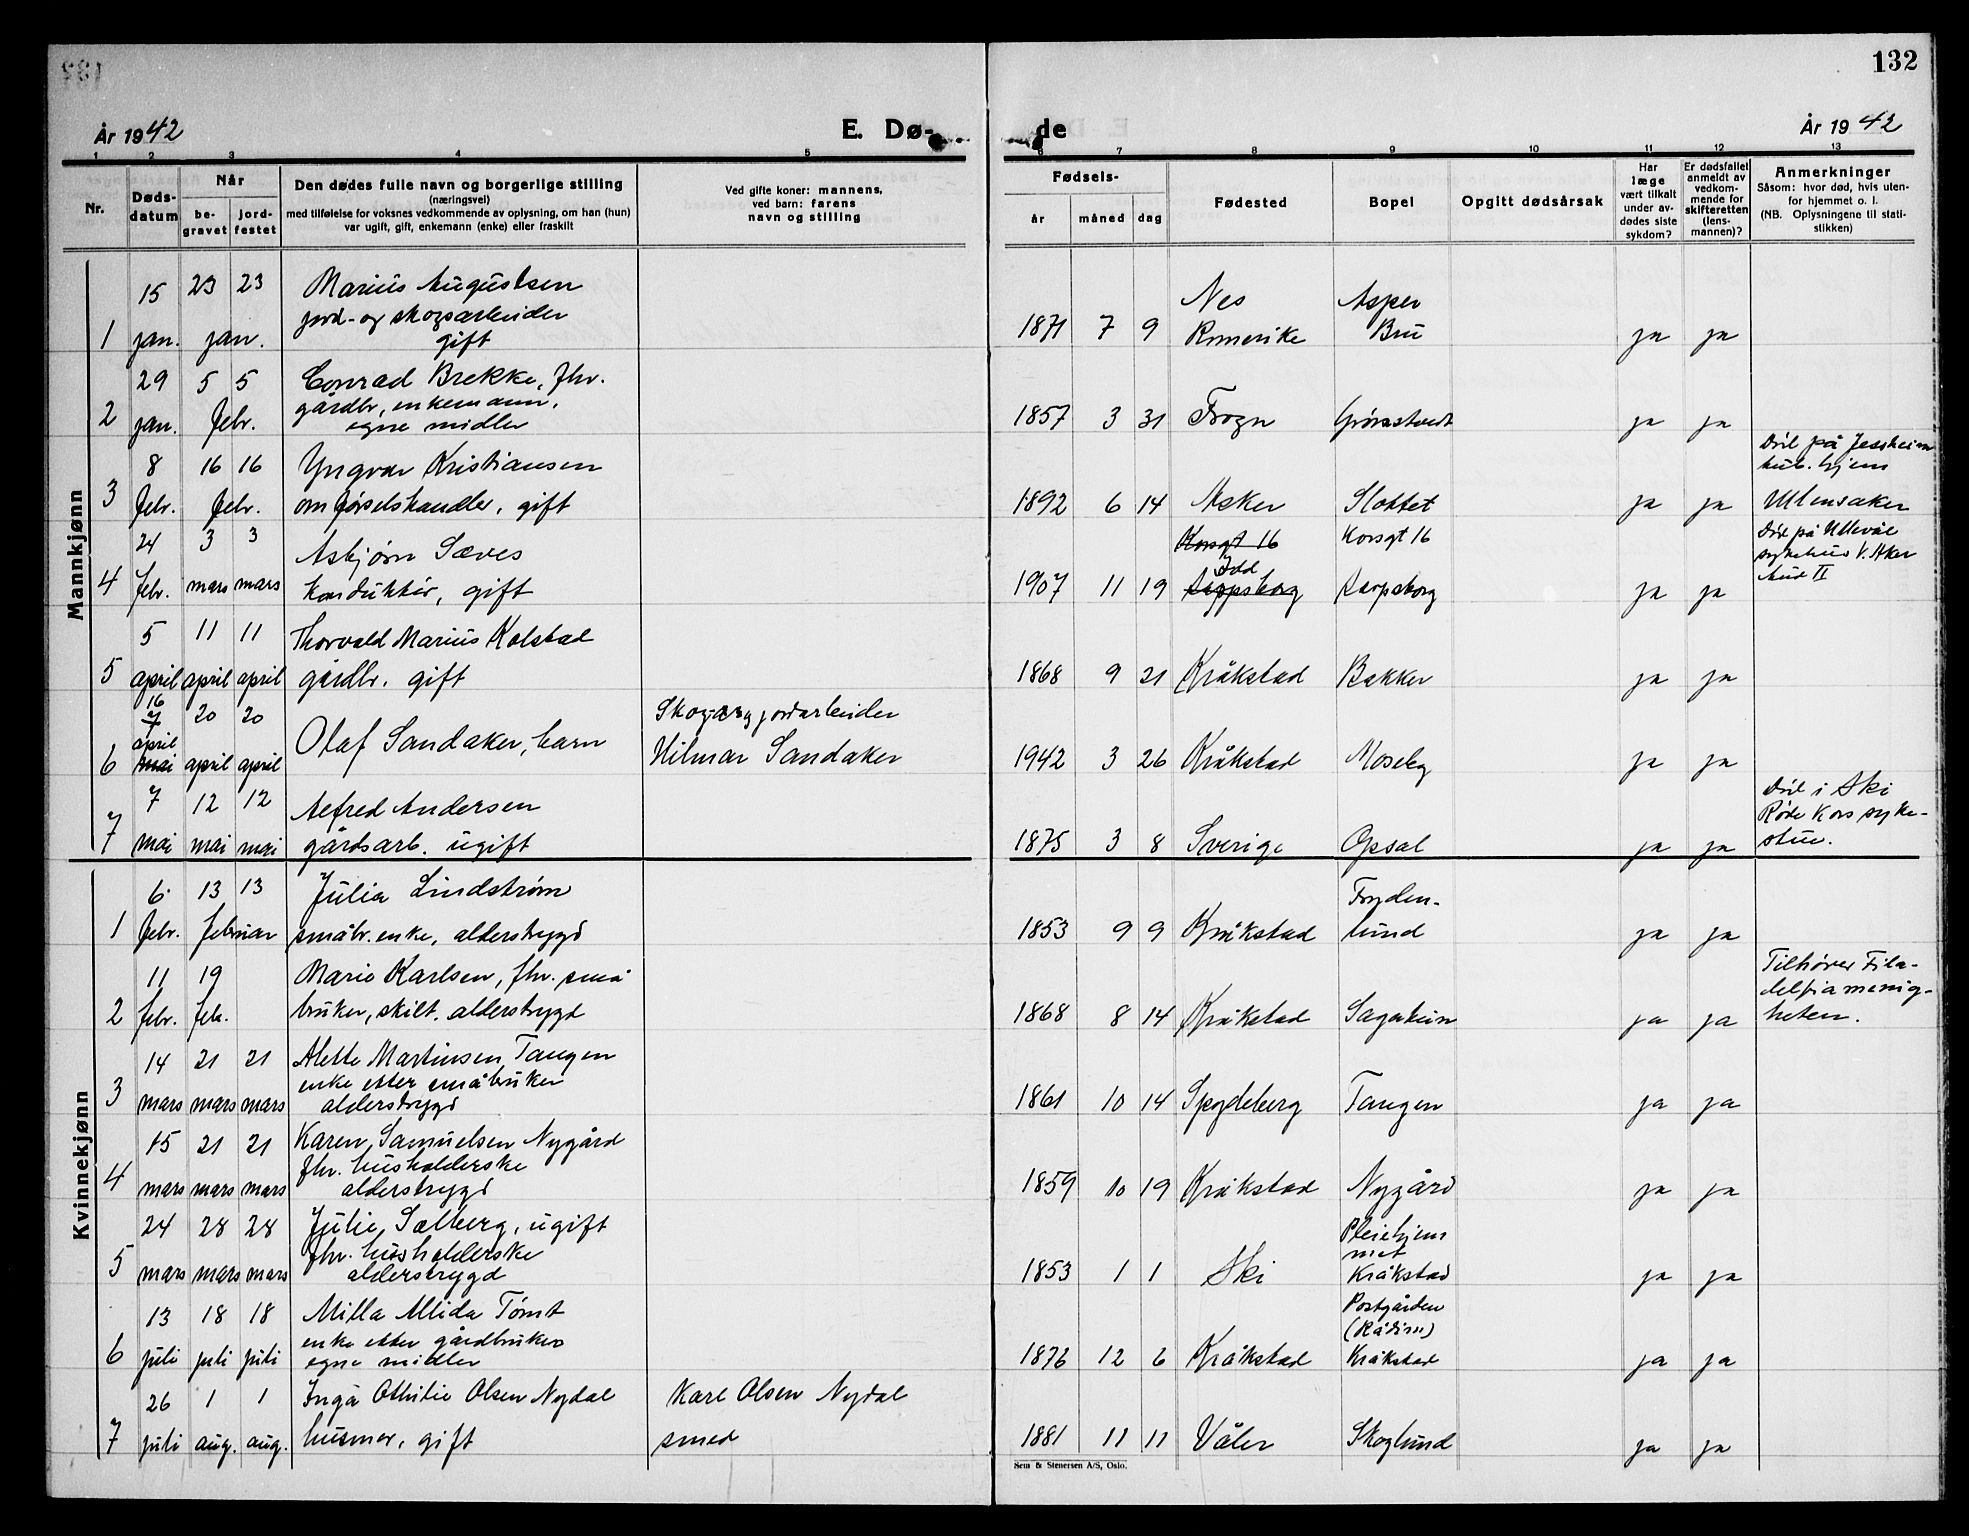 132
År 1942 E. Dø- de År 1942
1 2 3 4 5 6 7 8 9 10 11 12 13
Nr.
Dødsdatum
Når
be-
gravet
jord-
festet
Den dødes fulle navn og borgerlige stilling
(næringsvei)
med tilføielse for voksnes vedkommende av oplysning, om han (hun)
var ugift, gift, enkemann (enke) eller fraskilt
Ved gifte koner: mannens,
ved barn: farens
navn og stilling
Fødsels-
år måned dag
Fødested
Bopel
Opgitt dødsårsak
Har
læge
vært tilkalt
under av-
dødes siste
sykdom?
Er dødsfallet
anmeldt av
vedkom-
mende for
skifteretten
(lens-
mannen)?
Anmerkninger
Såsom: hvor død, hvis uten-
for hjemmet o. l.
(NB. Oplysningene til stati-
stikken)
Mannkjønn
15 23 23 Marius Augustsen Nes Asper
jord- og skogsarbeider
1 jan. jan. gift 1871 7 9 Romerike Bru ja ja
29 5 5 Conrad Brekke, fhv.
gårdbr, enkemann,
2 jan. febr. egne midler 1857 3 31 Frogn ja ja
8 16 16 Yngvar Kristiansen Død på Jessheim
hjem
3 febr. febr. omførselshandler, gift 1892 6 14 Asker Slottet ja ja Ullensaker
24 3 3 Asbjørn Sæves Korsgt 16 Korsgt 16 Død på Ullevål
sykehus V. Aker
4 febr. mars mars konduktør, gift 1907 11 19 Sarpsborg Idd Sarpsborg ja ja
5 11 11 Thorvald Marius Kolstad
5 april april april gårdbr. gift 1868 9 21 Kråkstad Bakker ja ja
16
7 20 20 Skog- og jordarbeider
april Olaf Sandaker, barn
6 mai april april Hilmar Sandaker 1942 3 26 Kråkstad Moseby ja ja
7 12 12 Alfred Andersen Død i Ski
Røde Kors syke-
7 mai mai mai gårdsarb. ugift 1875 3 8 Sverige Opsal ja ja stue.
Kvinnekjønn
6 13 13 Julia Lindstrøm Fryden-
1 febr. februar småbr. enke, alderstrygd 1853 9 9 Kråkstad lund ja ja
11 19 Marie Karlsen, fhv. små Tilhører Fila-
delfiamenig-
2 febr. feb. bruker, skilt. alderstrygd 1868 8 14 Kråkstad Sagaheim ja ja heten.
14 21 21 Alette Martinsen Tangen
enke etter småbruker
3 mars mars mars alderstrygd 1861 10 14 Spydeberg Tangen ja ja
15 21 21 Karen Samuelsen Nygård
fhv. husholderske
4 mars mars mars alderstrygd 1859 10 19 Kråkstad Nygård ja ja
24 28 28 Julie Sælberg, ugift Pleiehjem
fhv. husholderske met
5 mars mars mars alderstrygd 1853 1 1 Ski Kråkstad ja ja
13 18 18 Milla Alida Tømt Postgården
enke etter gårdbruker
6 juli juli juli egne midler 1876 12 6 Kråkstad Kråkstad ja ja
26 1 1 Inga Othilie Olsen Nydal Karl Olsen Nydal
7 juli aug. aug. husmor, gift smed 1881 11 11 Våler Skoglund ja ja
Sem & Stenersen A/S, Oslo.